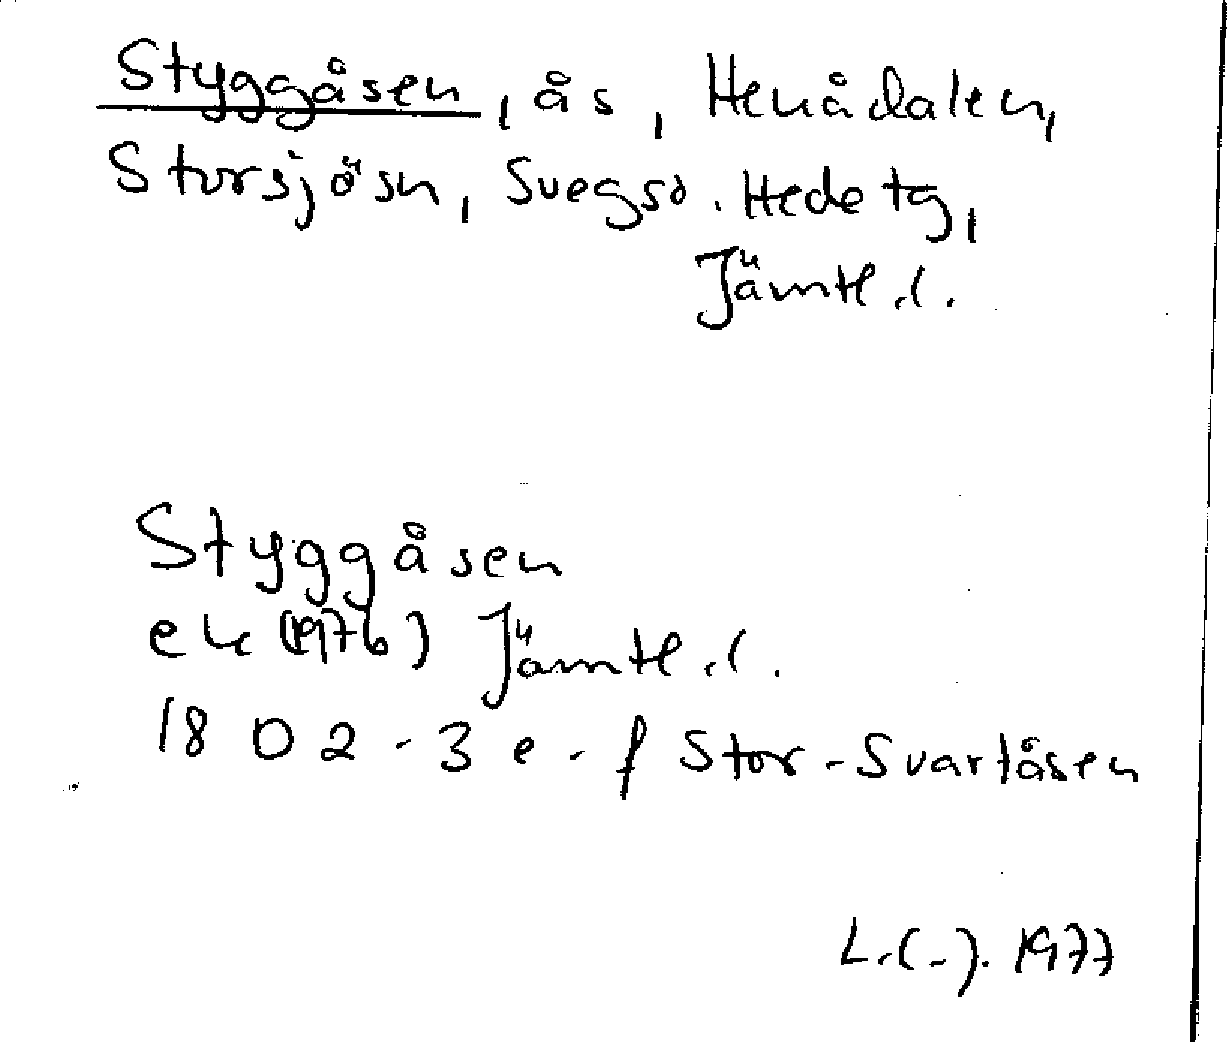 Styggåsen, ås, Henådalen,
Storsjösn, Svegs d. Hede tg,
Jämtl. l.
Styggåsen
ek (1976) Jämtl. l.
1802-3 e-f Stor-Svartåsen
L.(-). 1977